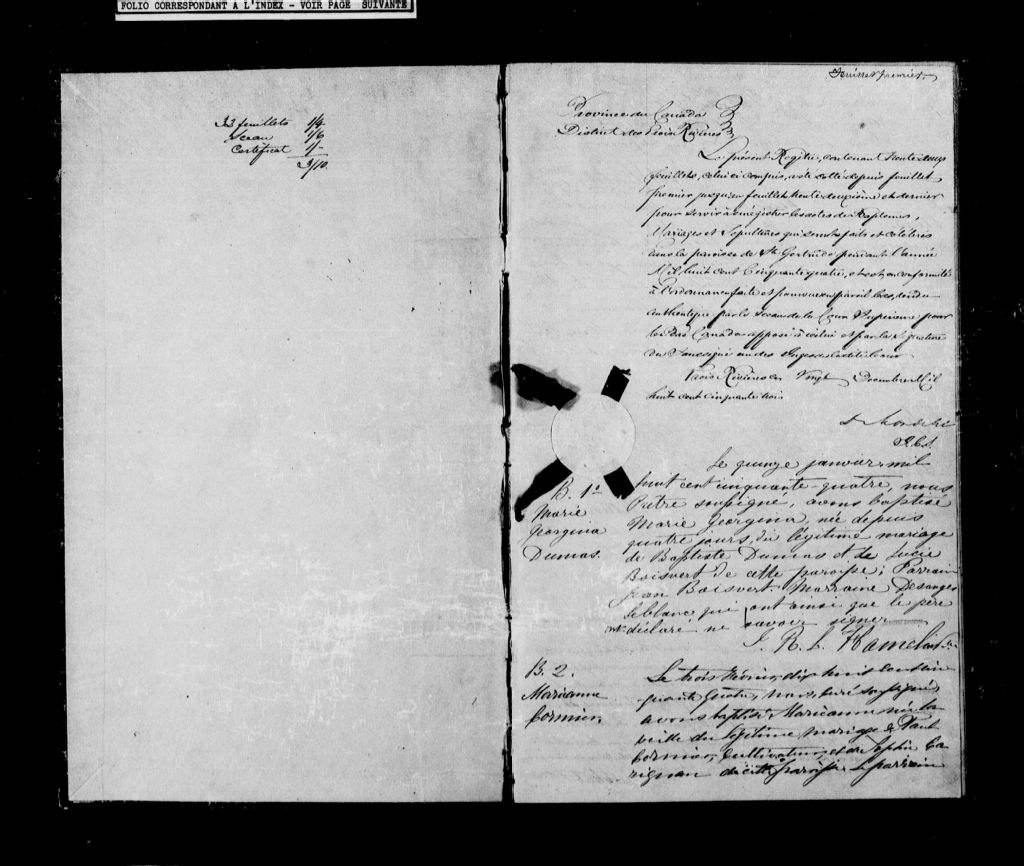 FOLIO CORRESPONDANT A L'INDEX - VOIR PAGE SUIVANTE
33 feuillets 1/4
Sceau 1/6
Certificat 1/-
3/10.
Feuillet premier.
Province du Canada
District des Trois Rivières
Le présent Registre, contenant trente deux
feuillets, celui ci compris, a été coté depuis feuillet
premier jusqu'au feuillet trente deuxième et dernier
pour servir à enrégistrer les actes de Baptêmes,
Mariages et Sépultures qui seront faits et célébrés
dans la paroisse de Ste Gertrude pendant l'année
Mil huit cent Cinquante quatre, et est en conformité
à l'ordonnance faite et pourvue en pareil cas, rendu
authentique par le Sceau de la Cour Supérieure pour
le Bas Canada apposé à icelui et par la Signature
du Soussigné un des Juges de ladite Cour
Trois Rivières ce Vingt Decembre Mil
huit cent cinquante trois
B. 1e
Marie
Georgina
Dumas.
Le quinze janvier mil
huit cent cinquante-quatre, nous
Prêtre soussigné, avons baptisé
Marie Georgina, née depuis
quatre jours, du légitime mariage
de Baptiste Dumas et de Lucie
Boisvert de cette paroisse; Parrain
Jean Boisvert Marraine Desanges
Leblanc qui ont ainsi que le père
déclaré ne savoir signer
J. R. L. Hamelin Ptre
B. 2.
Marianne
Cormier,
Le trois Février, dix huit cent cin
quante Quatre, Nous, curé soussigné,
avons baptisé Marianne née la
veille du légitime mariage de Paul
Cormier, Cultivateur, et de Sophie Ca
rignan de cette paroisse. Le parrain